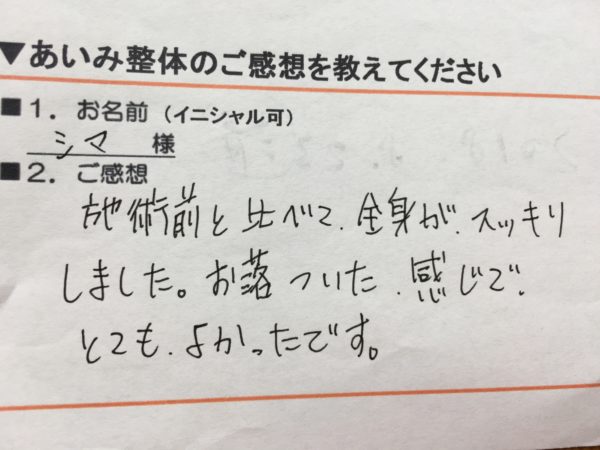 ▼あいみ整体のご感想を教えてください
■1. お名前（イニシャル可）
シマ 様
■2. ご感想
施術前と比べて、全身が、スッキリ
しました。お落ついた、感じで、
とても、よかったです。